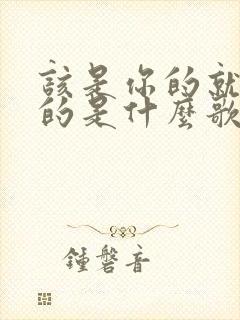 該是你的就
的是什麼歌
鍾磬音